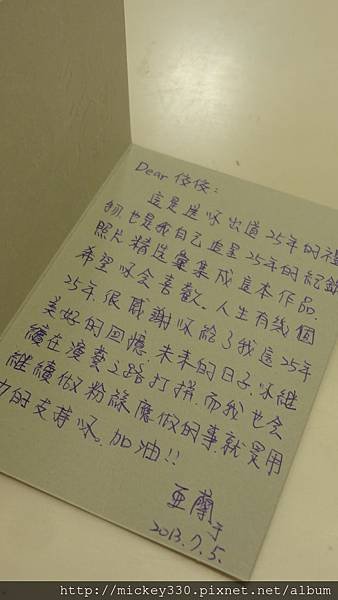 Dear 佼佼:
這是送你出道25年的禮
物.也是我自己追星25年的紀錄
照片精選彙集成這本作品.
希望你會喜歡.人生有幾個
25年.很感謝你給了我這25年
美好的回憶.未來的日子.你繼
續在演藝之路打拼.而我也會
繼續做粉絲應做的事.就是用
力的支持你.加油!!
亞蘭
2013.7.5.
http://mickey330.pixnet.net/album